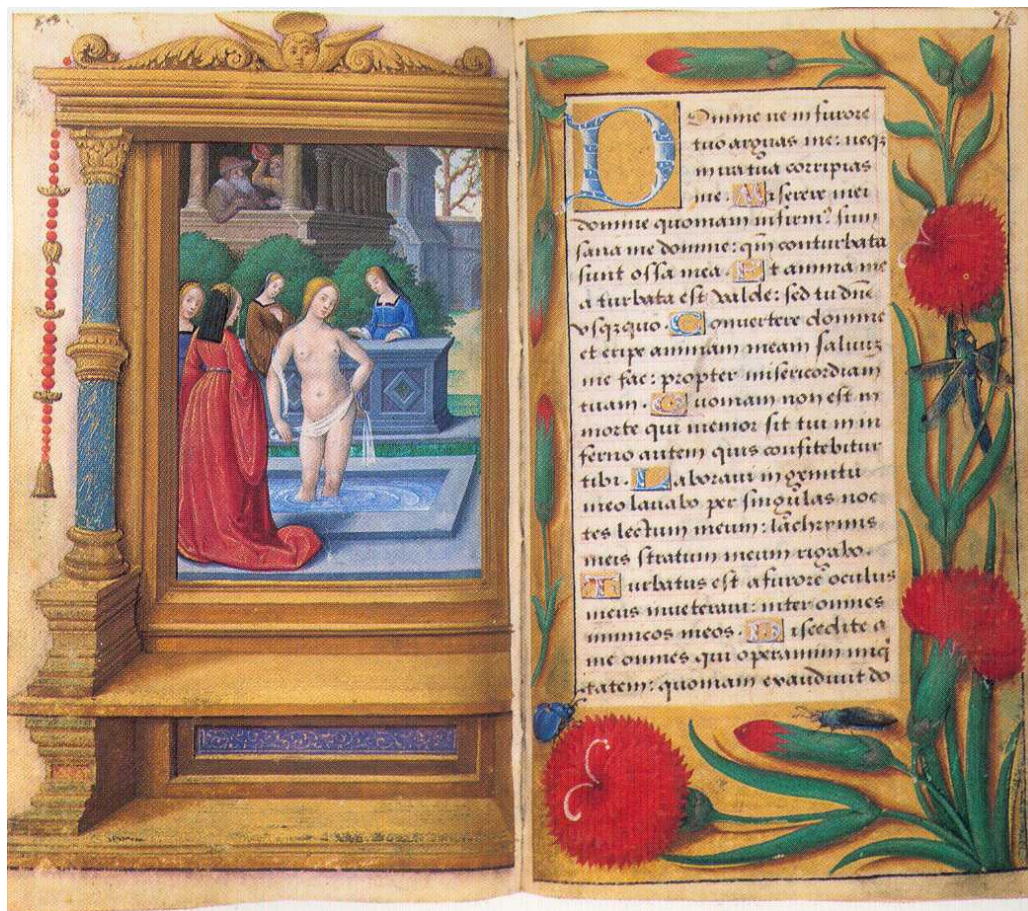 Domine ne in furore
tuo arguas me: neqꝫ
in ira tua corripias
me. Miserere mei
domine quoniam infirmꝰ sum
sana me domine: qm̄ conturbata
sunt ossa mea. Et anima me
a turbata est valde: sed tu dn̄e
vsqꝫquo. Conuertere domine
et eripe animam meam saluuꝫ
me fac: propter misericordiam
tuam. Quoniam non est in
morte qui memor sit tui in in
ferno autem quis confitebitur
tibi. Laboraui in gemitu
meo lauabo per singulas noc
tes lectum meum: lachrymis
meis stratum meum rigabo.
Turbatus est a furore oculus
meus inueteraui: inter omnes
inimicos meos. Discedite a
me omnes qui operamini iniq
tatem: quoniam exaudiuit do